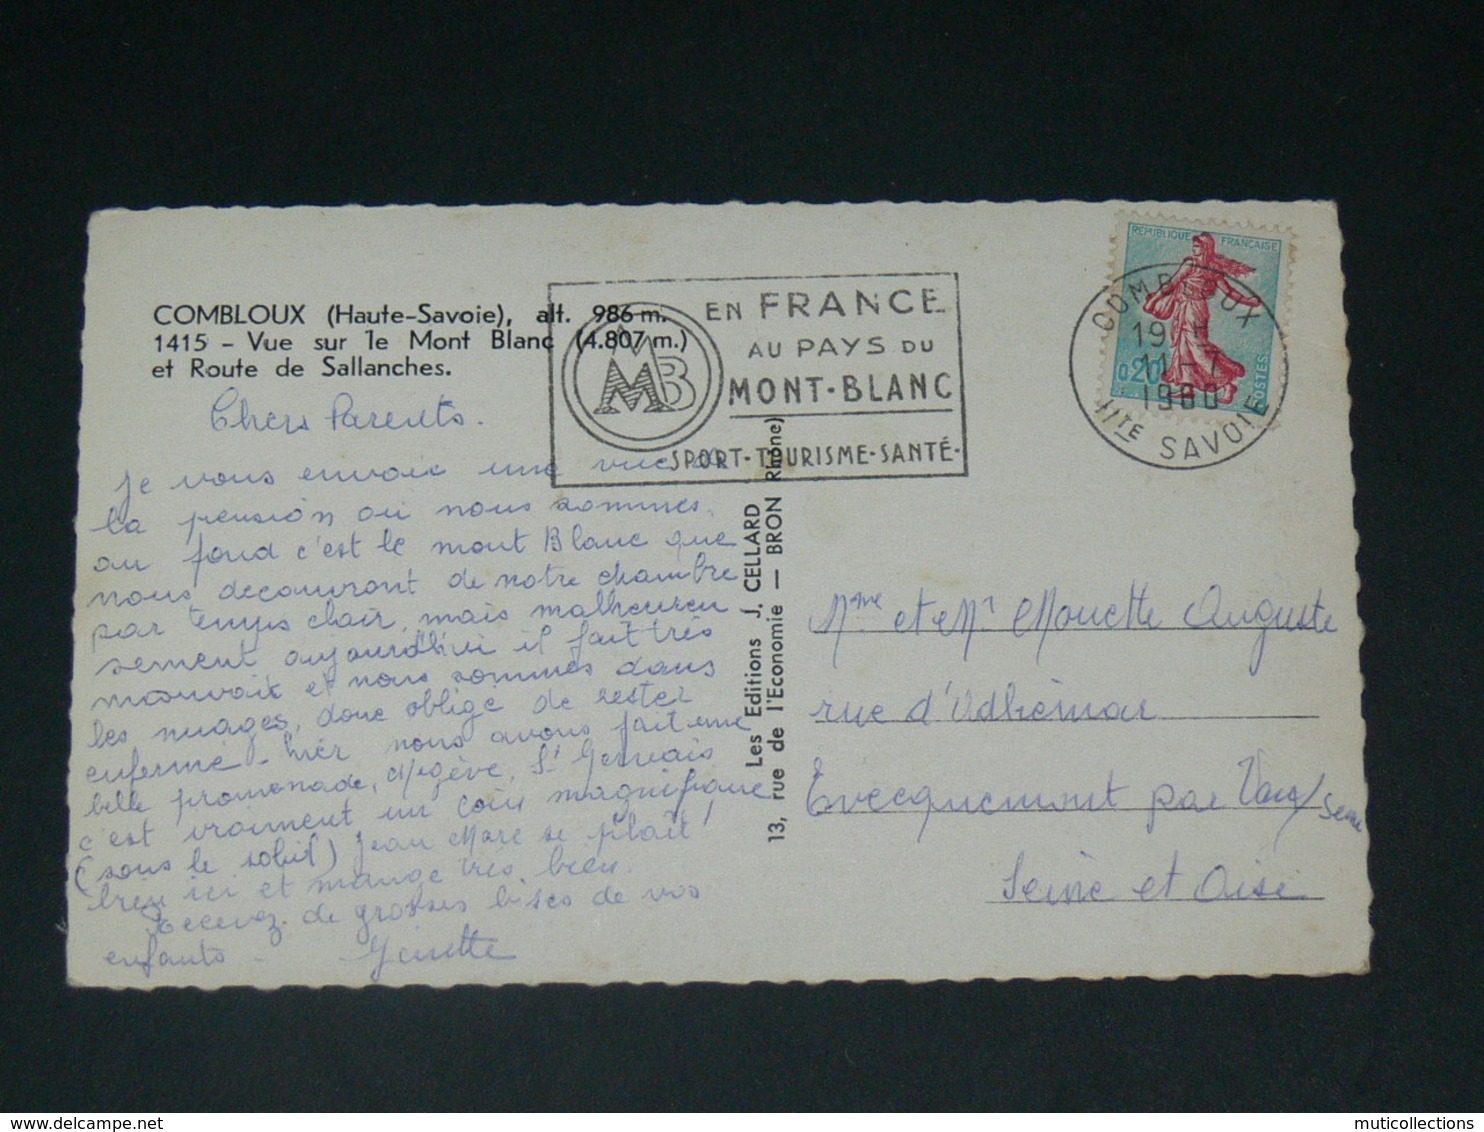 COMBLOUX (Haute-Savoie), alt. 986 m.
1415 - Vue sur le Mont Blanc (4.807 m.)
et Route de Sallanches.
Chers Parents.
Je vous envoie une vue de
la pension ou nous sommes.
au fond c'est le mont Blanc que
nous decouvront de notre chambre
par temps clair, mais malheureu
sement aujourd'hui il fait très
mauvais et nous sommes dans
les nuages, donc obligé de rester
enfermé - hier nous avons fait une
belle promenade, Megève, St Gervais
c'est vraiment un coin magnifique
(sous le soleil) Jean Marc se plait
bien ici et mange très bien.
Recevez de grosses bises de vos
enfants -
Ginette
MB
EN FRANCE
AU PAYS DU
MONT-BLANC
SPORT-TOURISME-SANTÉ-
Les Editions J. CELLARD
13, rue de l'Economie — BRON Rhône)
REPUBLIQUE FRANÇAISE
0,20
POSTES
COMBLOUX
11-7
1960
HTE SAVOIE
Mme et Mr Mouette Auguste
rue d'Adhémar
Evecquemont par Vaux/Seine
Seine et Oise
muticollections